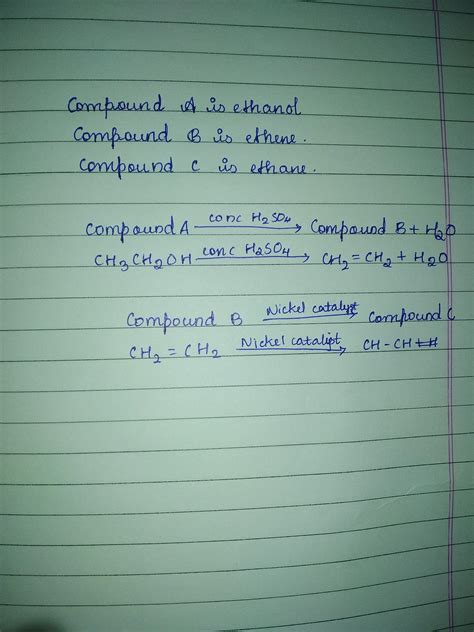 Compound A is ethanol
Compound B is ethene.
Compound C is ethane.
Compound A conc H2SO4 → Compound B + H2O
CH3CH2OH conc H2SO4 → CH2=CH2 + H2O
Compound B Nickel catalyst → Compound C
CH2 = CH2 Nickel catalyst → CH-CH